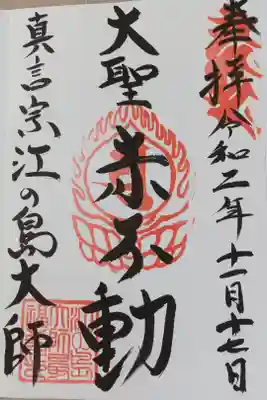 奉拝
令和二年十一月十七日
大聖赤不動
真言宗江の島大師